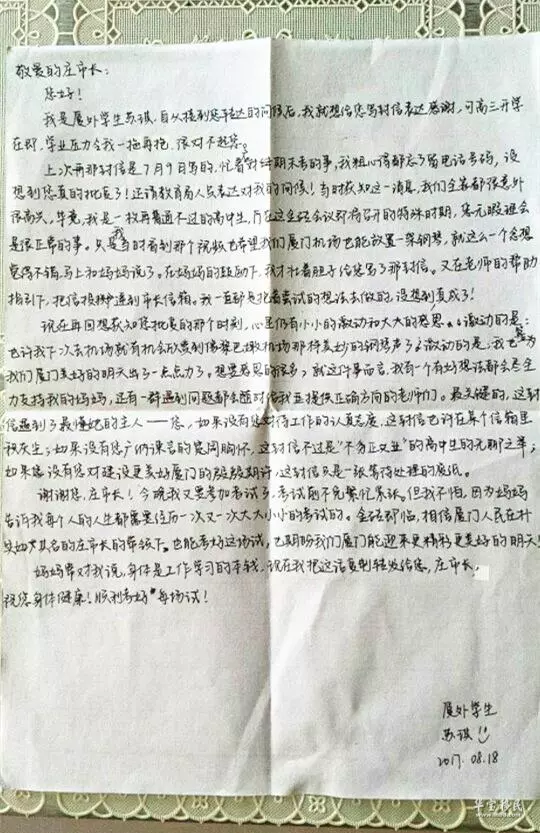 敬爱的庄市长：
您好！
我是厦外学生苏琪。自从接到您转达的问候后，我就想给您写封信表达感谢，可高三开学
在即，学业压力令我一拖再拖，很对不起您。
上次再那封信是7月9日写的，忙着对付期末考的事，我粗心得都忘了留电话号码，没
想到您真的批复了！还请教育局人员表达对我的问候！当时获知这一消息，我们全家都很意外
很高兴，毕竟，我是一枚再普通不过的高中生，万在这金砖会议即将召开的特殊时期，您无暇理会
是很正常的事。只是我当时看到那个视频也希望我们厦门机场也能放置一架钢琴，就这么一个念想
觉得不错，马上和妈妈说了。在妈妈的鼓励下，我才壮着胆子给您写了那封信。又在老师的帮助
指引下，把信投递到市长信箱。我一直都是抱着尝试的想法去做的，没想到真成了！
现在再回想获知您批复的那个时刻，心里仍有小小的激动和大大的感恩。小激动的是：
也许我下次去机场就有机会欣赏到像黎巴嫩机场那样美妙的钢琴声了；激动的是，我也曾为
我们厦门美好的明天出了一点点力了。想要感恩的很多，就这件事而言，我有一个有好想法都会尽全
力支持我的妈妈，还有一群遇到问题都会随时给我互提供正确方向的老师们。最关键的，这封
信遇到了最懂她的主人——您，如果没有您对待工作的认真态度，这封信也许在某个信箱里
积灰尘；如果没有您广纳谏言的宽阔胸怀，这封信不过是“不务正业”的高中生的无聊之举；
如果您没有您对建设更美好厦门的殷殷期许，这封信只是一张等待处理的废纸。
谢谢您，庄市长！今晚我又要参加考试了，考试前不免繁忙紧张。但我不怕，因为妈妈
告诉我每个人的人生都需要经历一次又一次大大小小的考试的。金砖即临，相信厦门人民在朴
实如其名的庄市长的带领下，也能考好这场试，也期盼我们厦门能迎来更精彩更美好的明天！
妈妈常对我说，身体是工作学习的本钱，现在我把这话复制转发给您，庄市长，
祝您身体健康！顺利考好每场试！
厦外学生
苏琪
2017.08.18
华宝移民